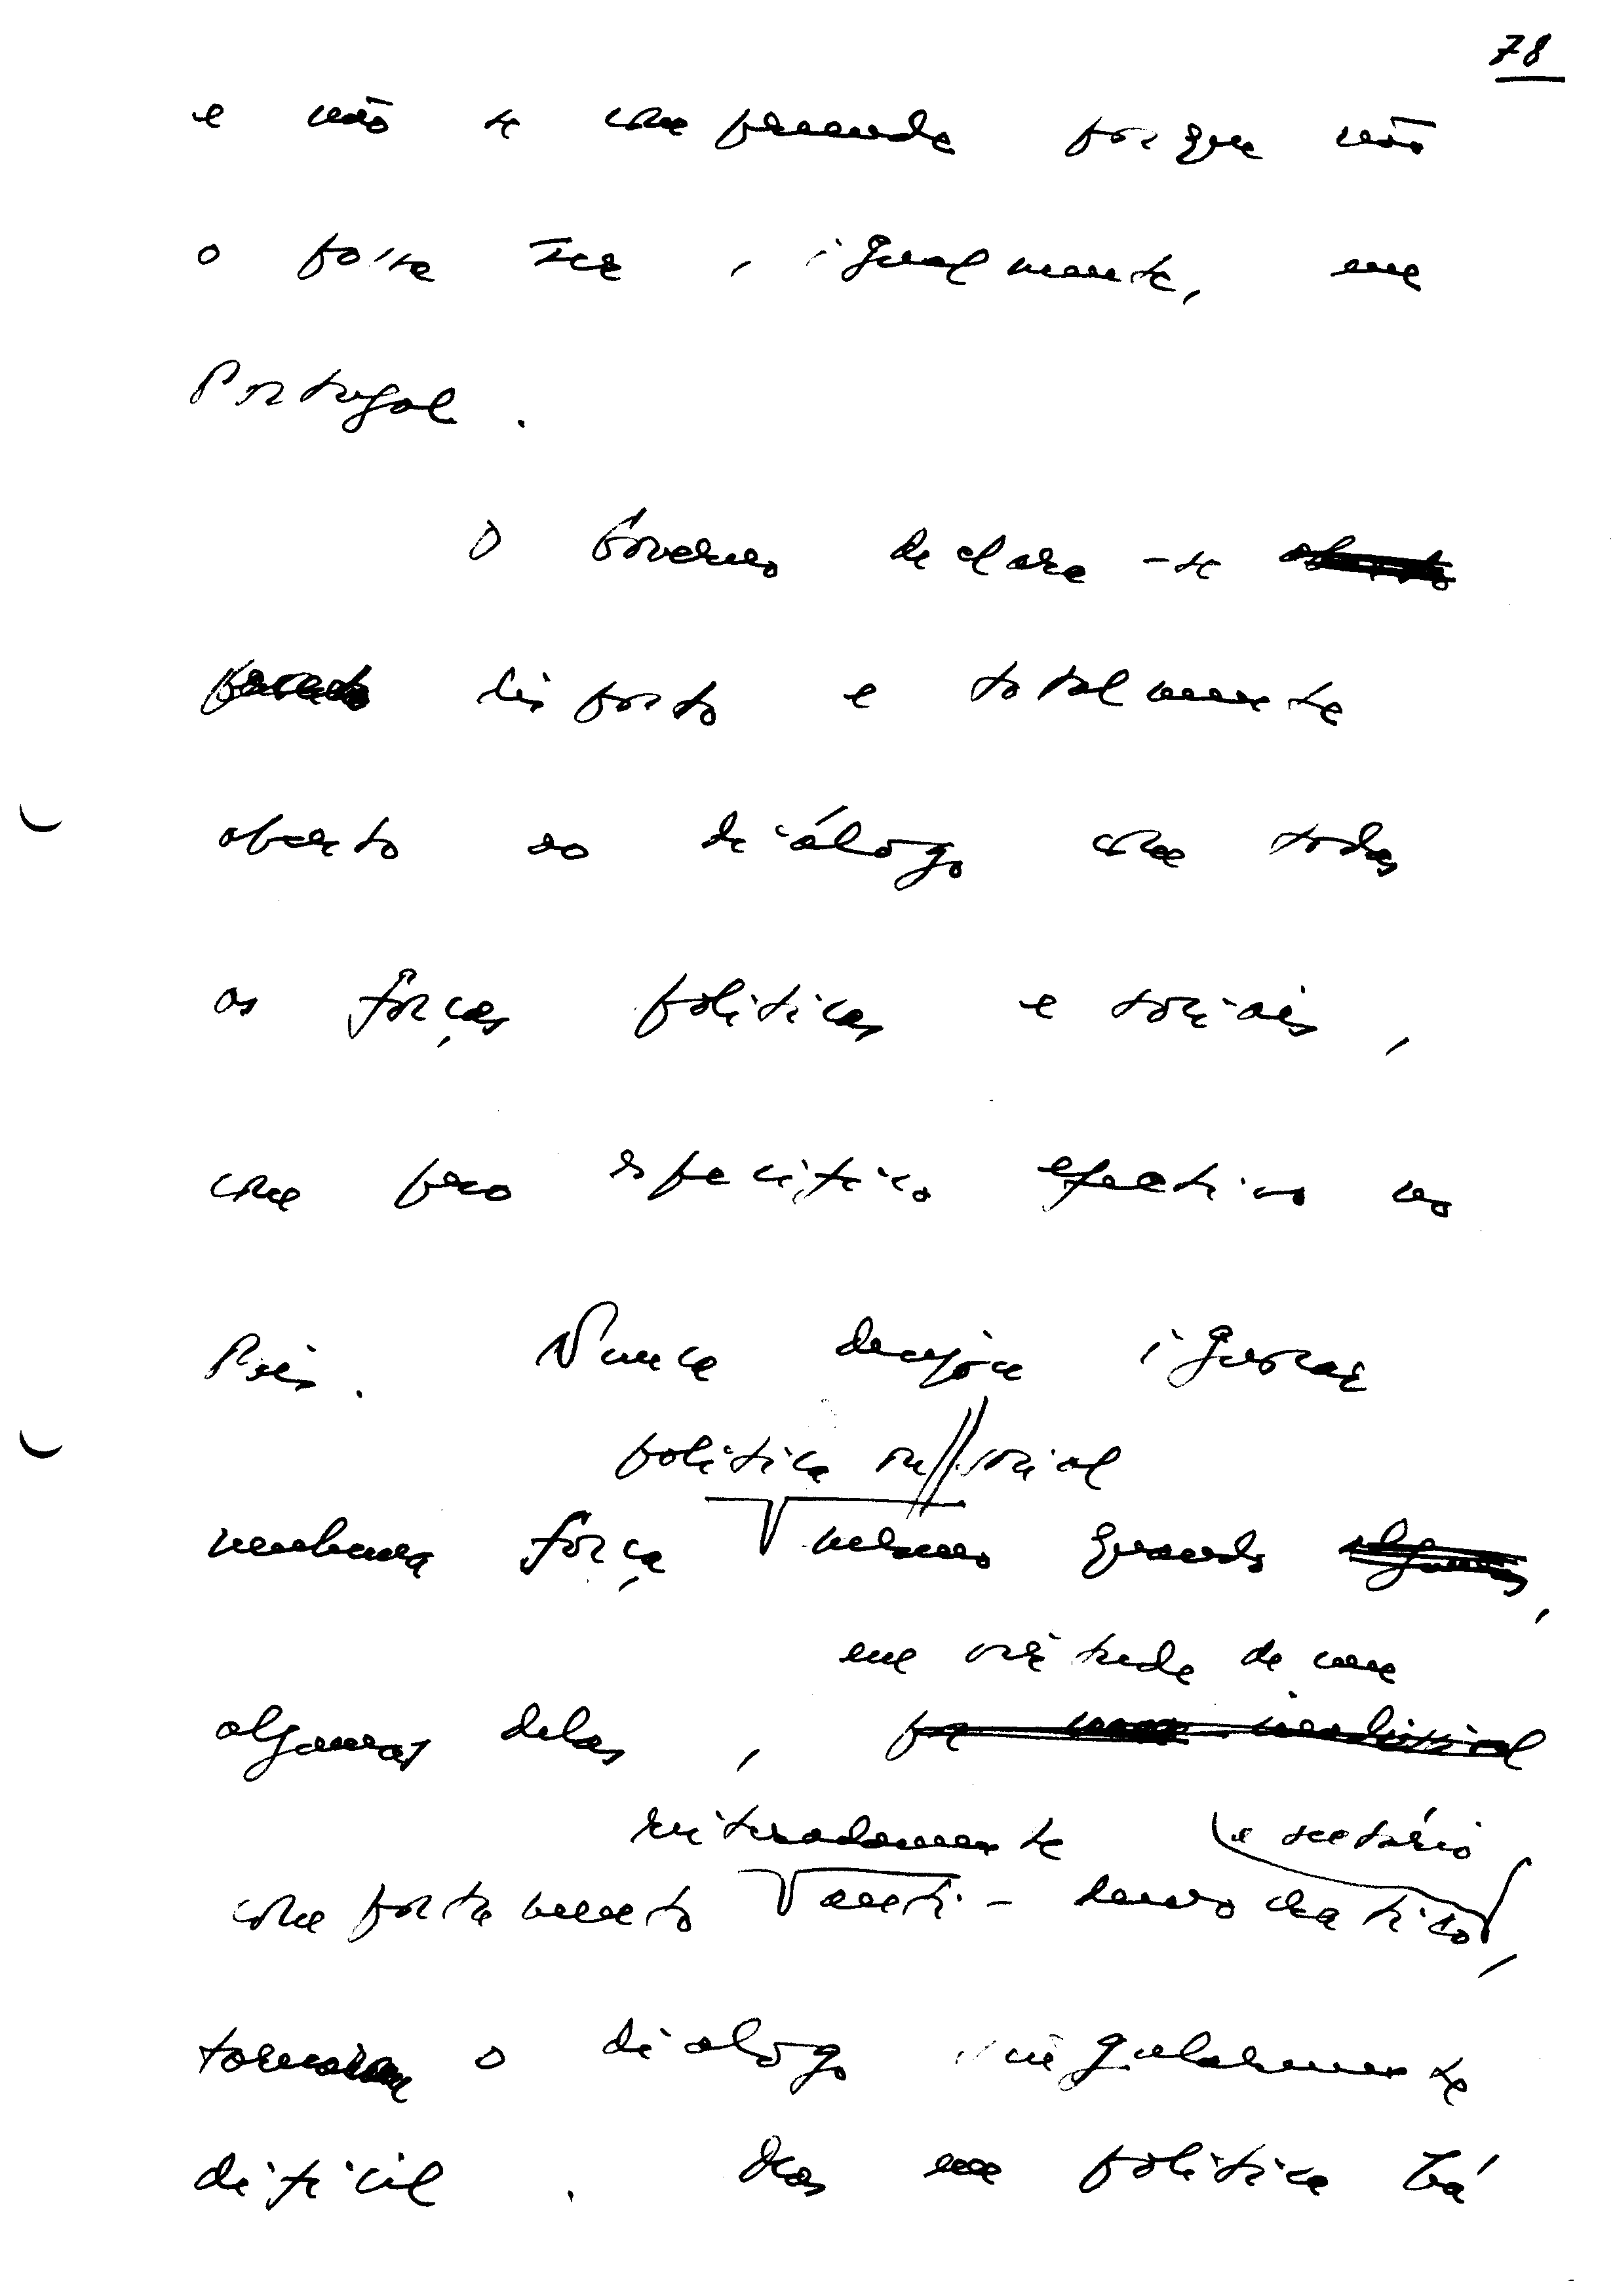 78
e não se compreende porque não
o possa ser, igualmente, em
Portugal.
O Governo declara-se
disposto e totalmente
aberto ao diálogo com todas
as forças políticas e sociais,
com peso específico efectivo no
País. Nunca desejou ignorar
política ou social
nenhuma força mesmo quando algumas,
em virtude de um
algumas delas, por uma
reiteradamente e sectário
comportamento anti-democrático,
tornaram o dialogo singularmente
difícil. Mas em política há